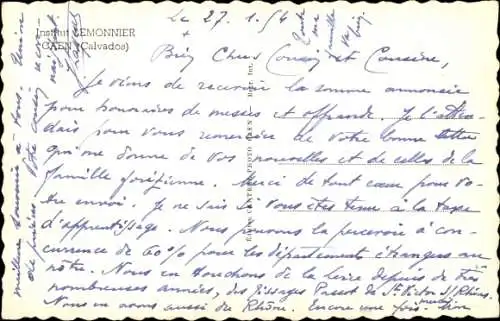 Institut LEMONNIER
CAEN (Calvados)
Le 27.1.54
+
Bien Chers Cousin et Cousine,
Je viens de recevoir la somme annoncée
pour honoraires de messes et offrande. Je l'atten-
dais pour vous remercier de votre bonne lettre
qui me donne de vos nouvelles et de celles de la
famille forézienne. Merci de tout cœur pour vo-
tre envoi. Je ne sais si vous êtes tenu à la taxe
d'apprentissage. Nous pouvons la percevoir à con-
currence de 60% pour les départements étrangers au
nôtre. Nous en touchons de la Loire depuis de très
nombreuses années, des Tissages Passot de St Victor s/Rhins.
Nous en avons aussi du Rhône. Encore une fois merci
meilleur souvenir à tous. Union
de prières. Votre cousin recon-
naissant
Toute
ma
famille
va
bien